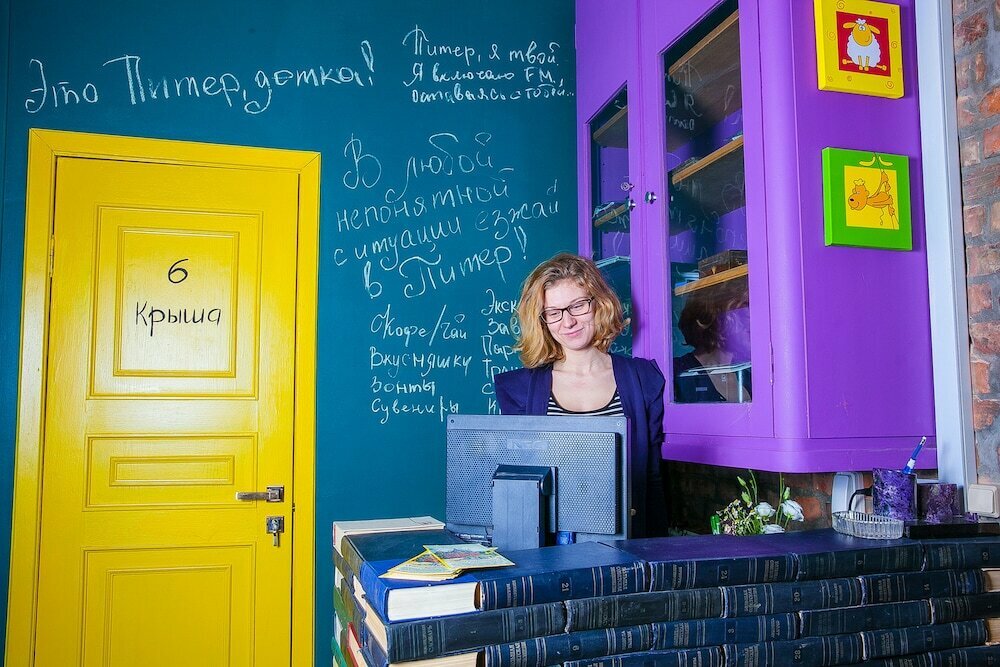 Это Питер, детка!
Питер, я твой.
Я включаю FM,
оставаясь с тобой...
В любой
непонятной
ситуации езжай
в Питер!
Кофе/Чай
Вкусняшку
Зонты
Сувениры
Экс
За
6
Крыша